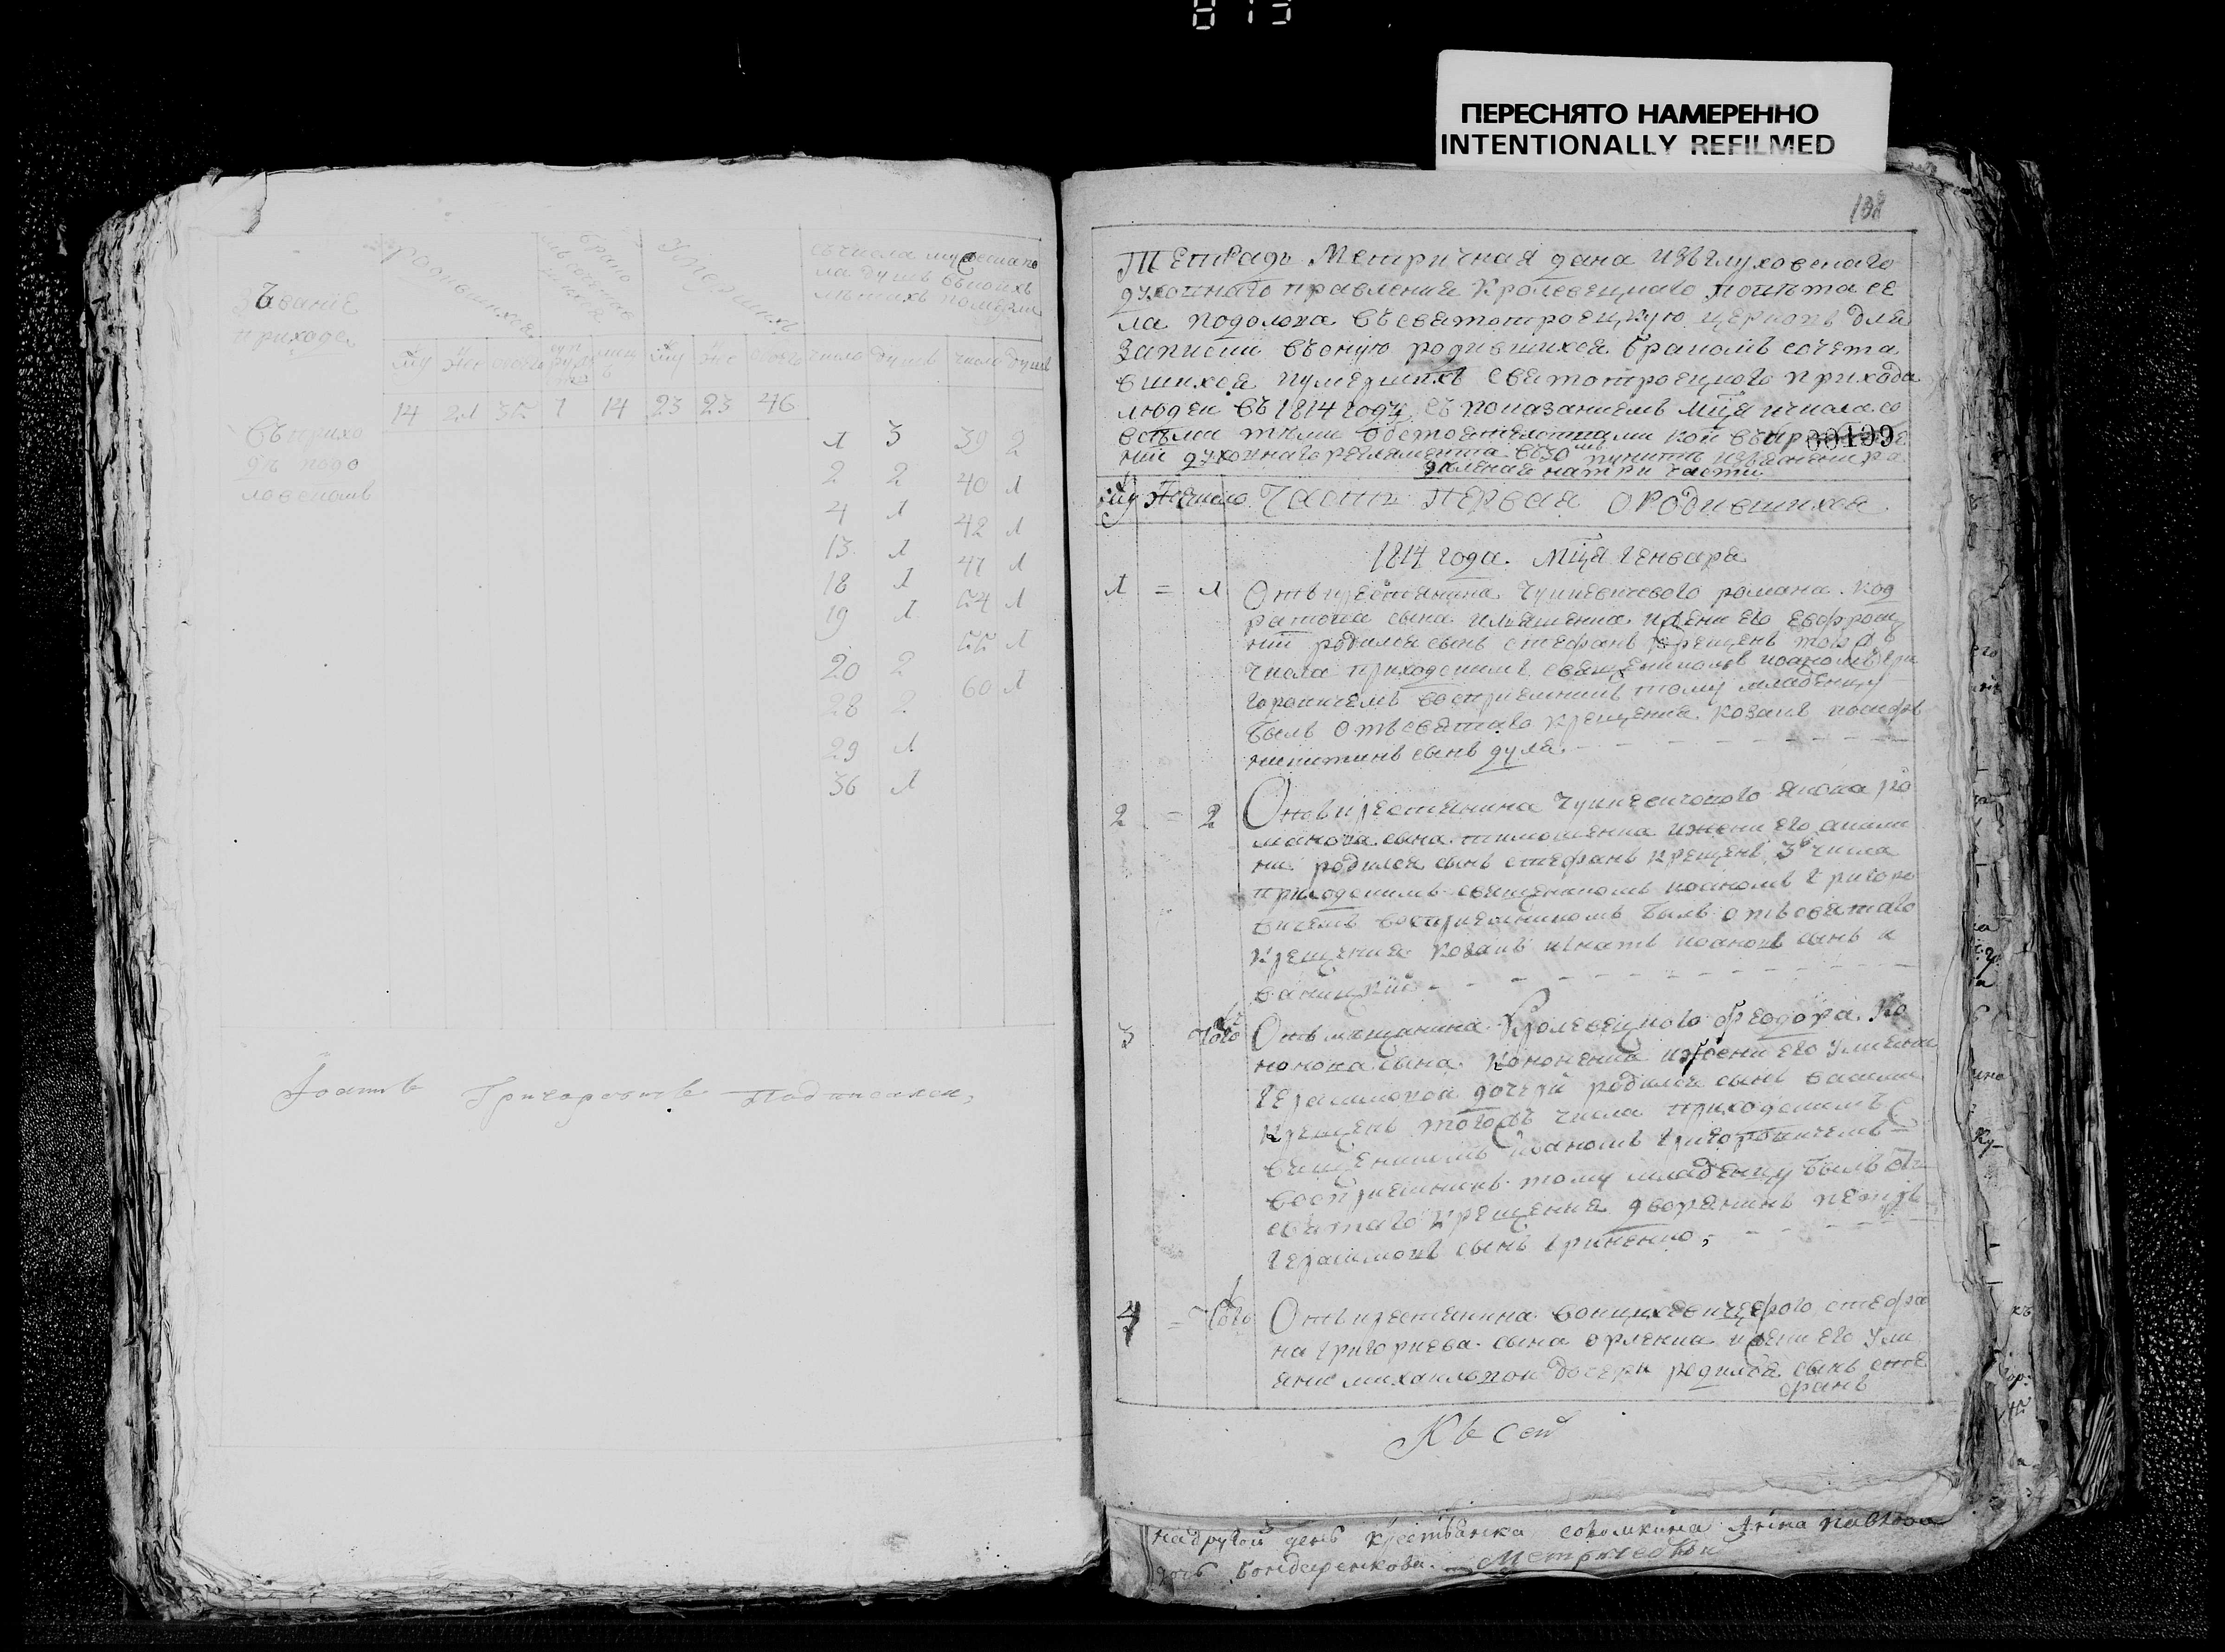 ПЕРЕСНЯТО НАМЕРЕННО
INTENTIONALLY REFILMED
званіе
прихода
родившихся
бракомъ сочетавшихся
умершихъ
съ числа мужеска по
ла душъ въ коихъ
лѣтахъ померли
му же обоего му же обоего число душъ число душъ
14 21 35 7 14 23 23 46
Въ прихо
дѣ подо
ловскомъ
1 3 39 2
2 2 40 1
4 1 42 1
13 1 47 1
18 1 54 1
19 1 55 1
20 2 60 1
28 2
29 1
36 1
Іоаннъ Григоровичъ Подписался,
138
Тетрадь Метричная дана изъ глуховскаго
духовнаго правления Кролевецкаго повѣта се
ла подолова въ святотроецкую церковь для
записки въ оную родившихся бракомъ сочета
вшихся и умершихъ святотроецкого прихода
людей въ 1814 году съ показаниемъ мца и числа со
всѣми тѣми обстоятелствами кои въ
00199
нии духовнаго регламента въ 30 пункти
дѣления на три части
му же число Часть первая о Родившихся
1814 года. мца генваря
1 = 1 Отъ крестянина Чуйкевичевого романа. код
ратова сына ильяшенка и жени его евфроси
нии родился сынъ стефанъ крещенъ того ж
числа приходскимъ священикомъ иоаномъ гри
горовичемъ восприемникъ тому младенцу
былъ отъ святаго крещения козакъ иосифъ
никитинъ сынъ дула
2 = 2 Отъ крестянина Чуйкевичового якова ро
манова сына тимошенка и жени его акили
ни родился сынъ стефанъ крещенъ 3 числа
приходскимъ священикомъ иоаномъ григоро
вичемъ восприемникомъ былъ отъ святаго
крещения козакъ игнатъ иоановъ сынъ
3 того Отъ мещанина Кролевецкого феодора. Ко
нонова сына. кононенка и жени его улияни
герасимовой дочери родился сынъ василий
крещенъ тогожъ числа приходскимъ с
вященикомъ иоаномъ григоровичемъ
восприемникъ тому младенцу былъ от
святаго крещения дворянинъ петръ
герасимовъ сынъ гриненко,
4 = того Отъ крестянина стефа
на григориева сына орленка и жени его ули
яни михайловой дочери родился сынъ сте
фанъ
Къ сей
на другой день крестьянка Анна Павлова
дочь Бондаренкова. Метрической